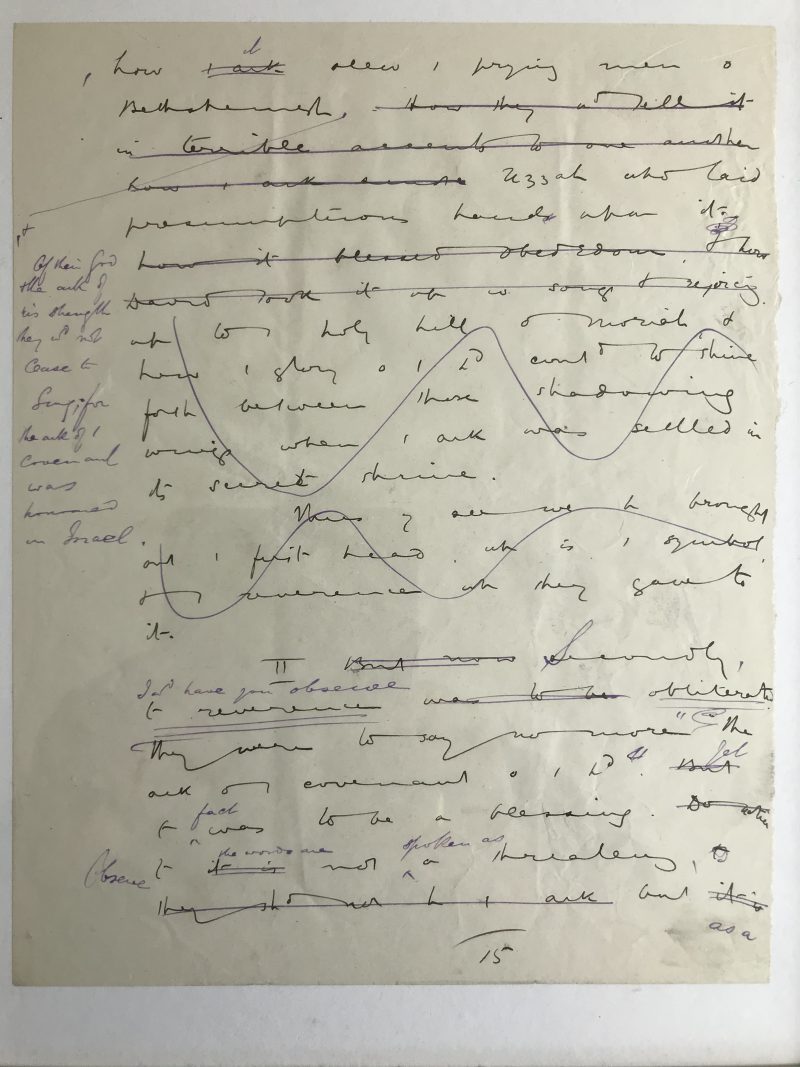 it
, how ı ark slew ı prying men o
Bethshemesh. How they wd tell it
in terrible accents to one another
how ı ark smote Uzzah who laid
presumptuous hands upon it.
how it blessed Obededom, & how
David took it up w songs & rejoicing
up to holy hill o Moriah &
how ı glory o ı Ld contd to shine
forth between those shadowing
wings when ı ark was settled in
its secret shrine.
Of their God
the ark of
his strength
they wd not
cease to
Sing; for
the ark of ı
covenant
was
honoured
in Israel.
Thus y see we h brought
out ı first head. wh is ı symbol
& ı reverence wh they gave to
it.
II But now Secondly,
I wd have you observe
t reverence was to be obliterated
They were to say no more "The
ark o ı covenant o ı Ld" But
Yet
t fact was to be a blessing.
Observe t it is not a threatening,
the words are spoken as
they shd not h ı ark but it is
as a
15